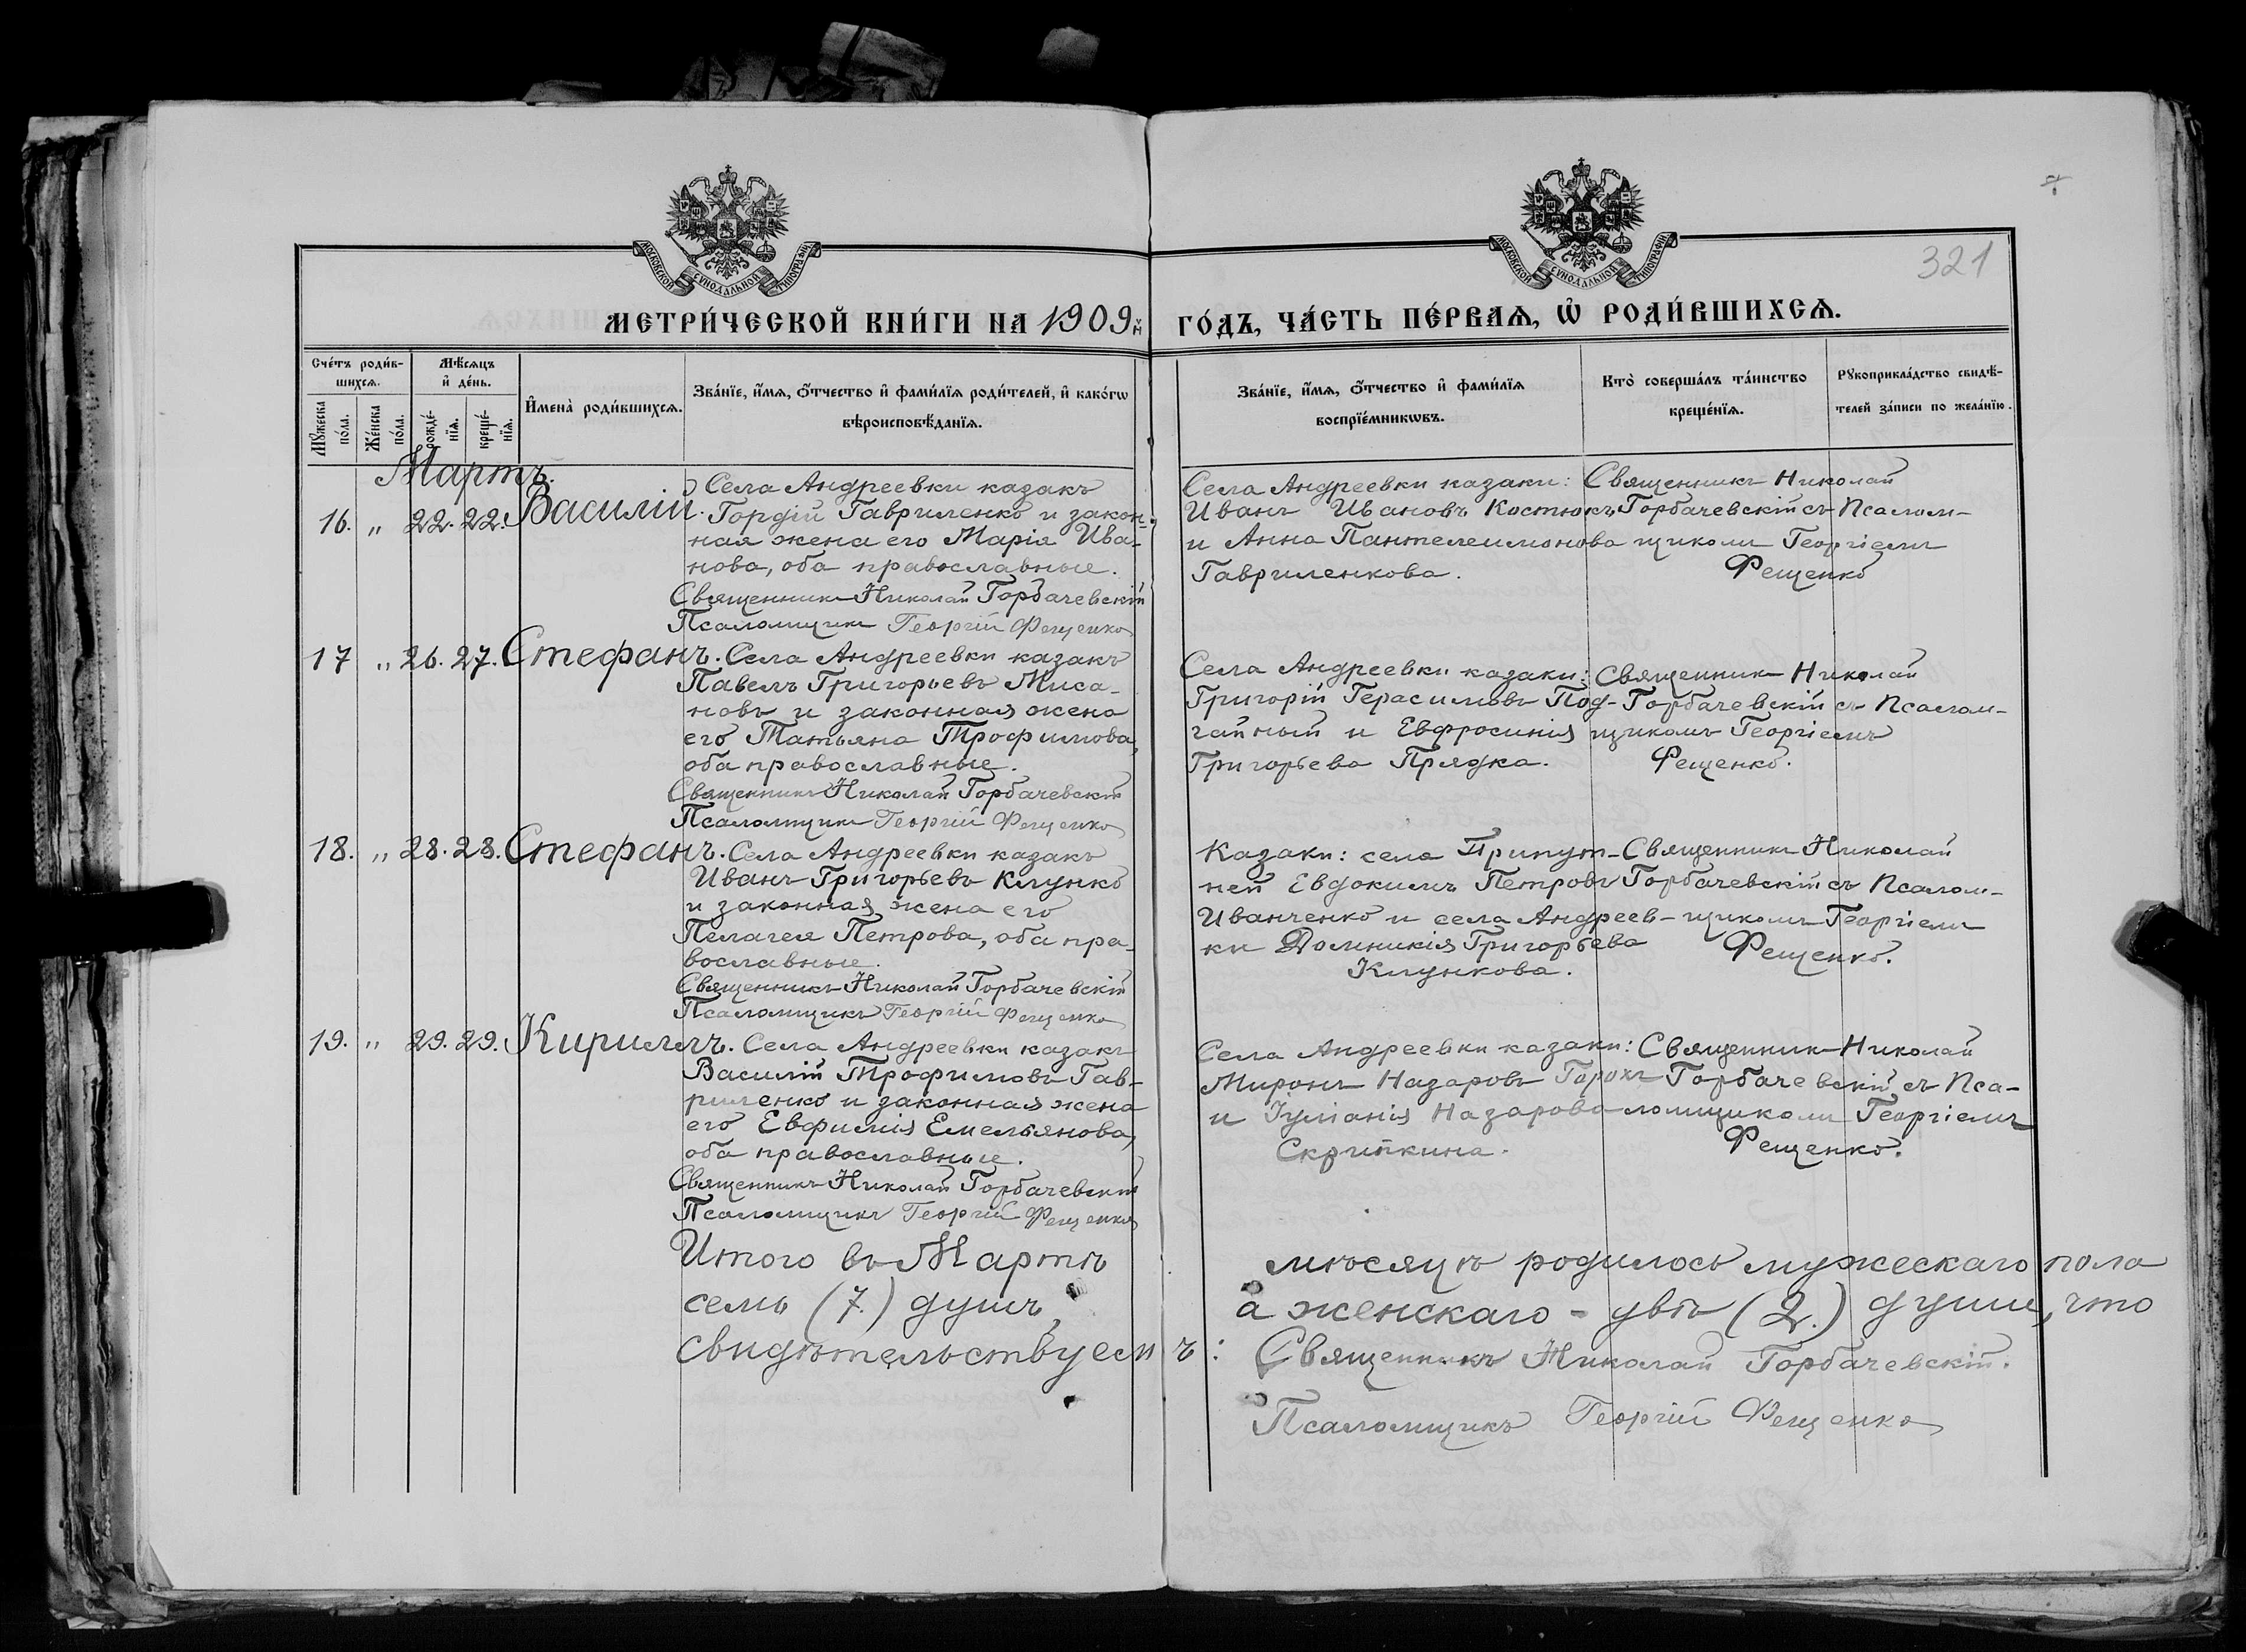 МОСКОВСКОЙ СѴНОДАЛЬНОЙ ТИПОГРАФІИ
МОСКОВСКОЙ СѴНОДАЛЬНОЙ ТИПОГРАФІИ
321
МЕТРИ́ЧЕСКОЙ КНИ́ГИ НА 1909й ГО́ДЪ, ЧА́СТЬ ПЕ́РВАѦ, Ѡ҆ РОДИ́ВШИХСѦ.
Сче́тъ роди́в-
шихсѧ.
Мꙋ́жеска по́ла.
Же́нска по́ла.
Мѣ́сѧцъ
и҆ де́нь.
рожде́-
нїѧ.
креще́-
нїѧ.
И҆мена̀ роди́вшихсѧ.
Зва́нїе, и҆́мѧ, ѻ҆́тчество и҆ фами́лїѧ роди́телей, и҆ како́гѡ
вѣроисповѣ́данїѧ.
Зва́нїе, и҆́мѧ, ѻ҆́тчество и҆ фами́лїѧ
воспрїе́мникѡвъ.
Кто̀ соверша́лъ та́инство
креще́нїѧ.
Рꙋкоприкла́дство свидѣ́-
телей за́писи по жела́нїю.
Мартъ.
16. " 22. 22. Василій.
Села Андреевки казакъ
Гордій Гавриленко и закон-
ная жена его Марія Ива-
нова, оба православные.
Священникъ Николай Горбачевскій
Псаломщикъ Георгій Фещенко
Села Андреевки казаки:
Иванъ Ивановъ Костюкъ
и Анна Пантелеимонова
Гавриленкова.
Священникъ Николай
Горбачевскій съ Псалом-
щикомъ Георгіемъ
Фещенко
17 " 26. 27. Стефанъ.
Села Андреевки казакъ
Павелъ Григорьевъ Миса-
новъ и законная жена
его Татьяна Трофимова,
оба православные.
Священникъ Николай Горбачевскій
Псаломщикъ Георгій Фещенко
Села Андреевки казаки:
Григорій Герасимовъ Под-
гайный и Евфросинія
Григорьева Прядка.
Священникъ Николай
Горбачевскій съ Псалом-
щикомъ Георгіемъ
Фещенко.
18. " 28. 28. Стефанъ.
Села Андреевки казакъ
Иванъ Григорьевъ Клунко
и законная жена его
Пелагея Петрова, оба пра-
вославные.
Священникъ Николай Горбачевскій
Псаломщикъ Георгій Фещенко
Казаки: села Припут-
ней Евдокимъ Петровъ
Иванченко и села Андреев-
ки Домникія Григорьева
Клункова.
Священникъ Николай
Горбачевскій съ Псалом-
щикомъ Георгіемъ
Фещенко.
19. " 29. 29. Кириллъ.
Села Андреевки казакъ
Василій Трофимовъ Гав-
риленко и законная жена
его Евфимія Емельянова,
оба православные.
Священникъ Николай Горбачевскій
Псаломщикъ Георгій Фещенко
Села Андреевки казаки:
Миронъ Назаровъ Горохъ
и Іуліанія Назарова
Скрипкина.
Священникъ Николай
Горбачевскій съ Пса-
ломщикомъ Георгіемъ
Фещенко.
Итого въ Мартѣ мѣсяцѣ родилось мужескаго пола
семь (7.) душъ, а женскаго - двѣ (2.) души, что
свидѣтельствуемъ: Священникъ Николай Горбачевскій.
Псаломщикъ Георгій Фещенко